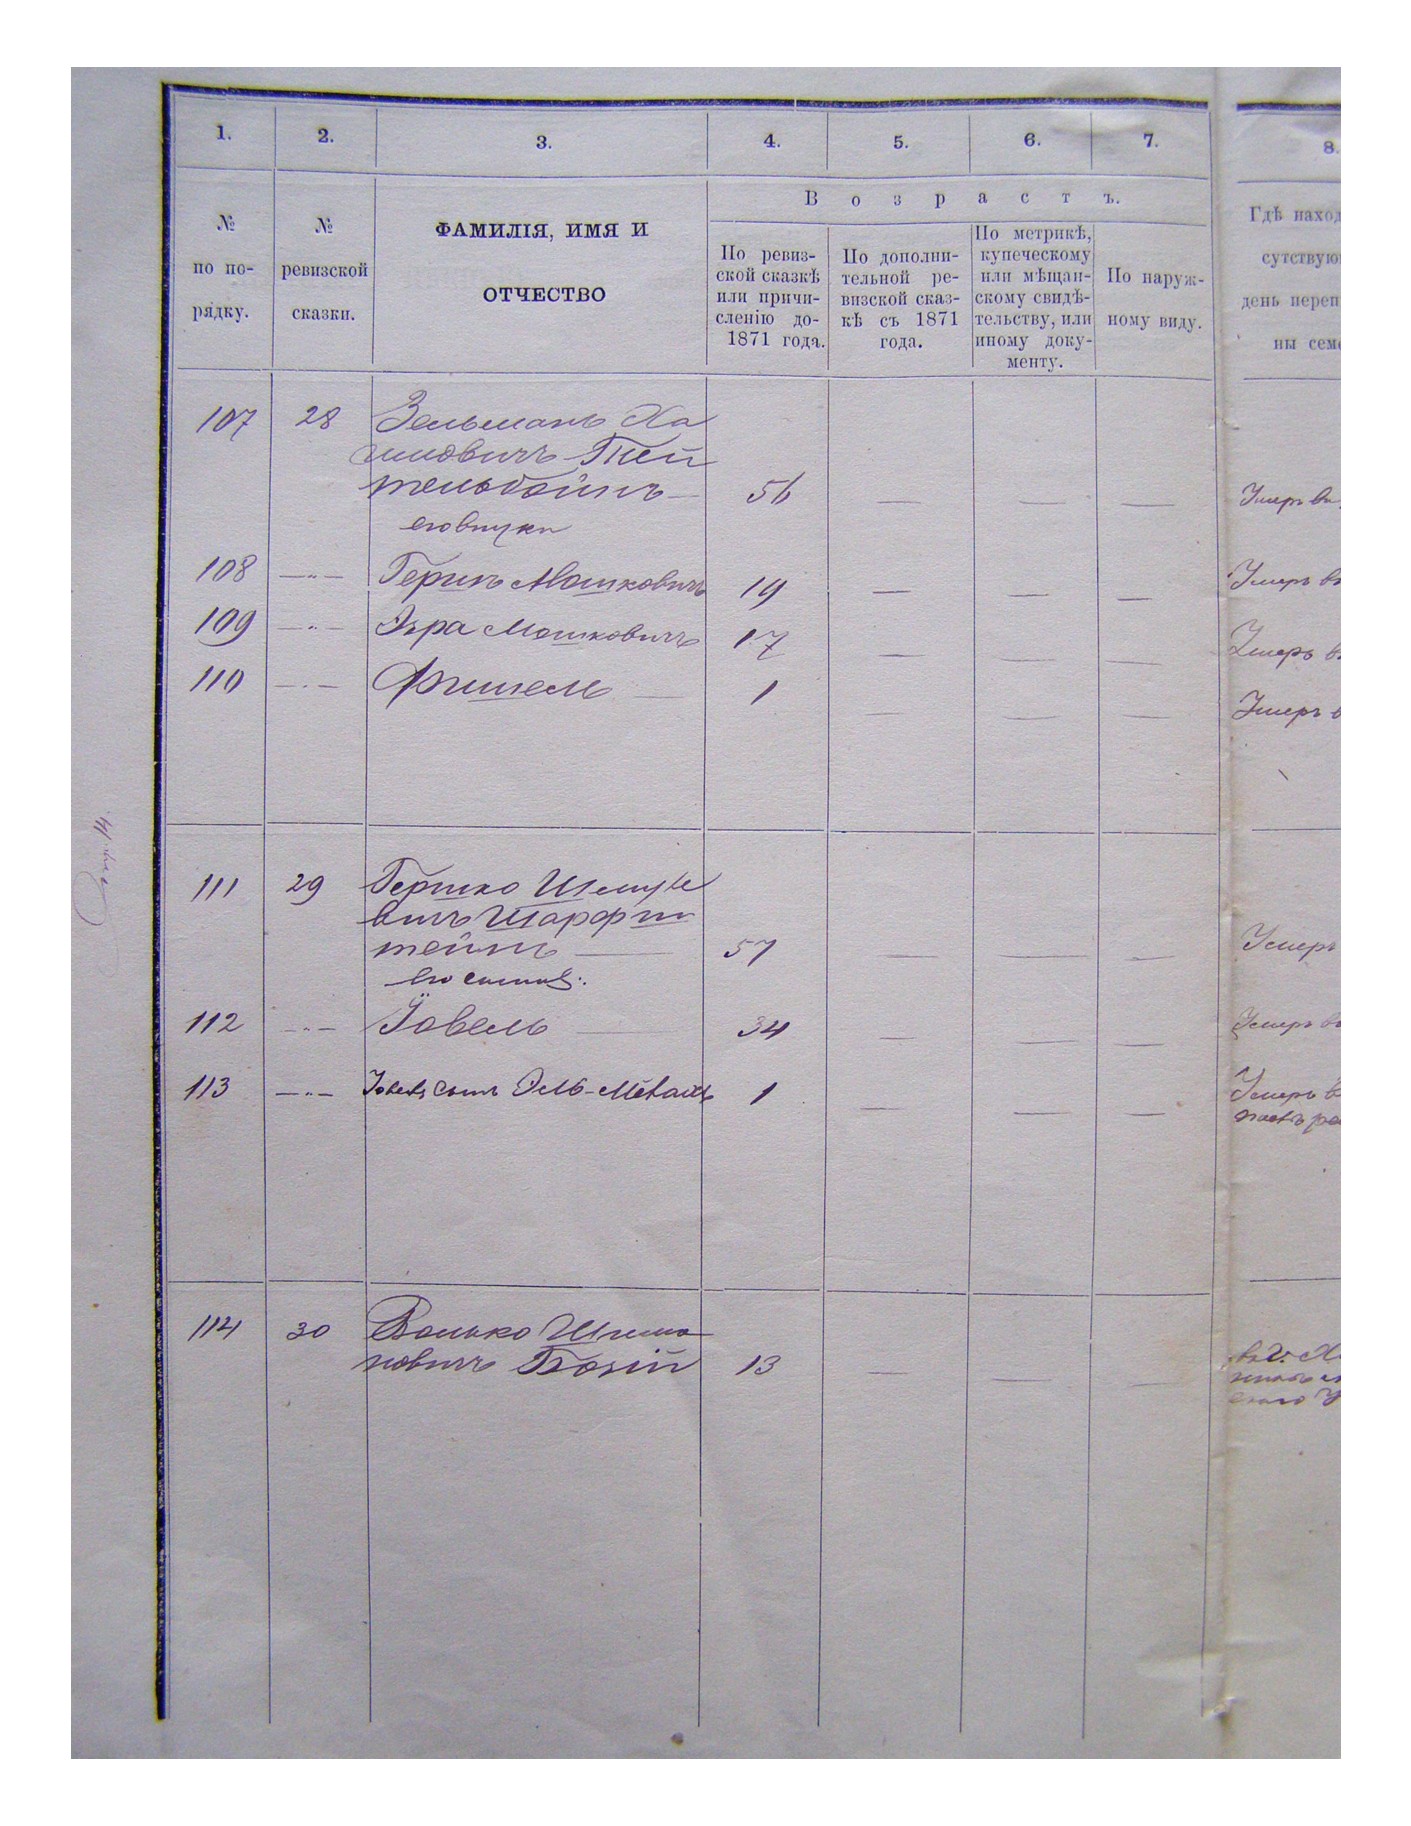 1. 2. 3. 4. 5. 6. 7. 8.
№ по по-рядку.
№ ревизской сказки.
ФАМИЛІЯ, ИМЯ И
ОТЧЕСТВО
Возрастъ.
По ревиз-
ской сказкѣ
или причи-
сленію до-
1871 года.
По дополни-
тельной ре-
визской сказ-
кѣ съ 1871
года.
По метрикѣ,
купеческому
или мѣщан-
скому свидѣ-
тельству, или
иному доку-
менту.
По наруж-
ному виду.
Гдѣ наход
сутствую
день переп
ны сем
107 28 Зельманъ Ха
имовичъ Тей
тельбаумъ — 56 — — — Умеръ въ
его внуки
108 —"— Гершъ Мошковичъ 19 — — — Умеръ въ
109 —"— Эзра Мошковичъ 17 — — — Умеръ въ
110 —"— Фишель — 1 — — — Умеръ в
111 29 Гершко Шмуле
вичъ Шарфш
тейнъ — 57 — — — Умеръ
его сынъ
112 —"— Іовель — 34 — — — Умеръ въ
113 —"— сынъ 1 — — — Умеръ в
114 30 Волько Шимо
новичъ 13 — — — въ г. Х